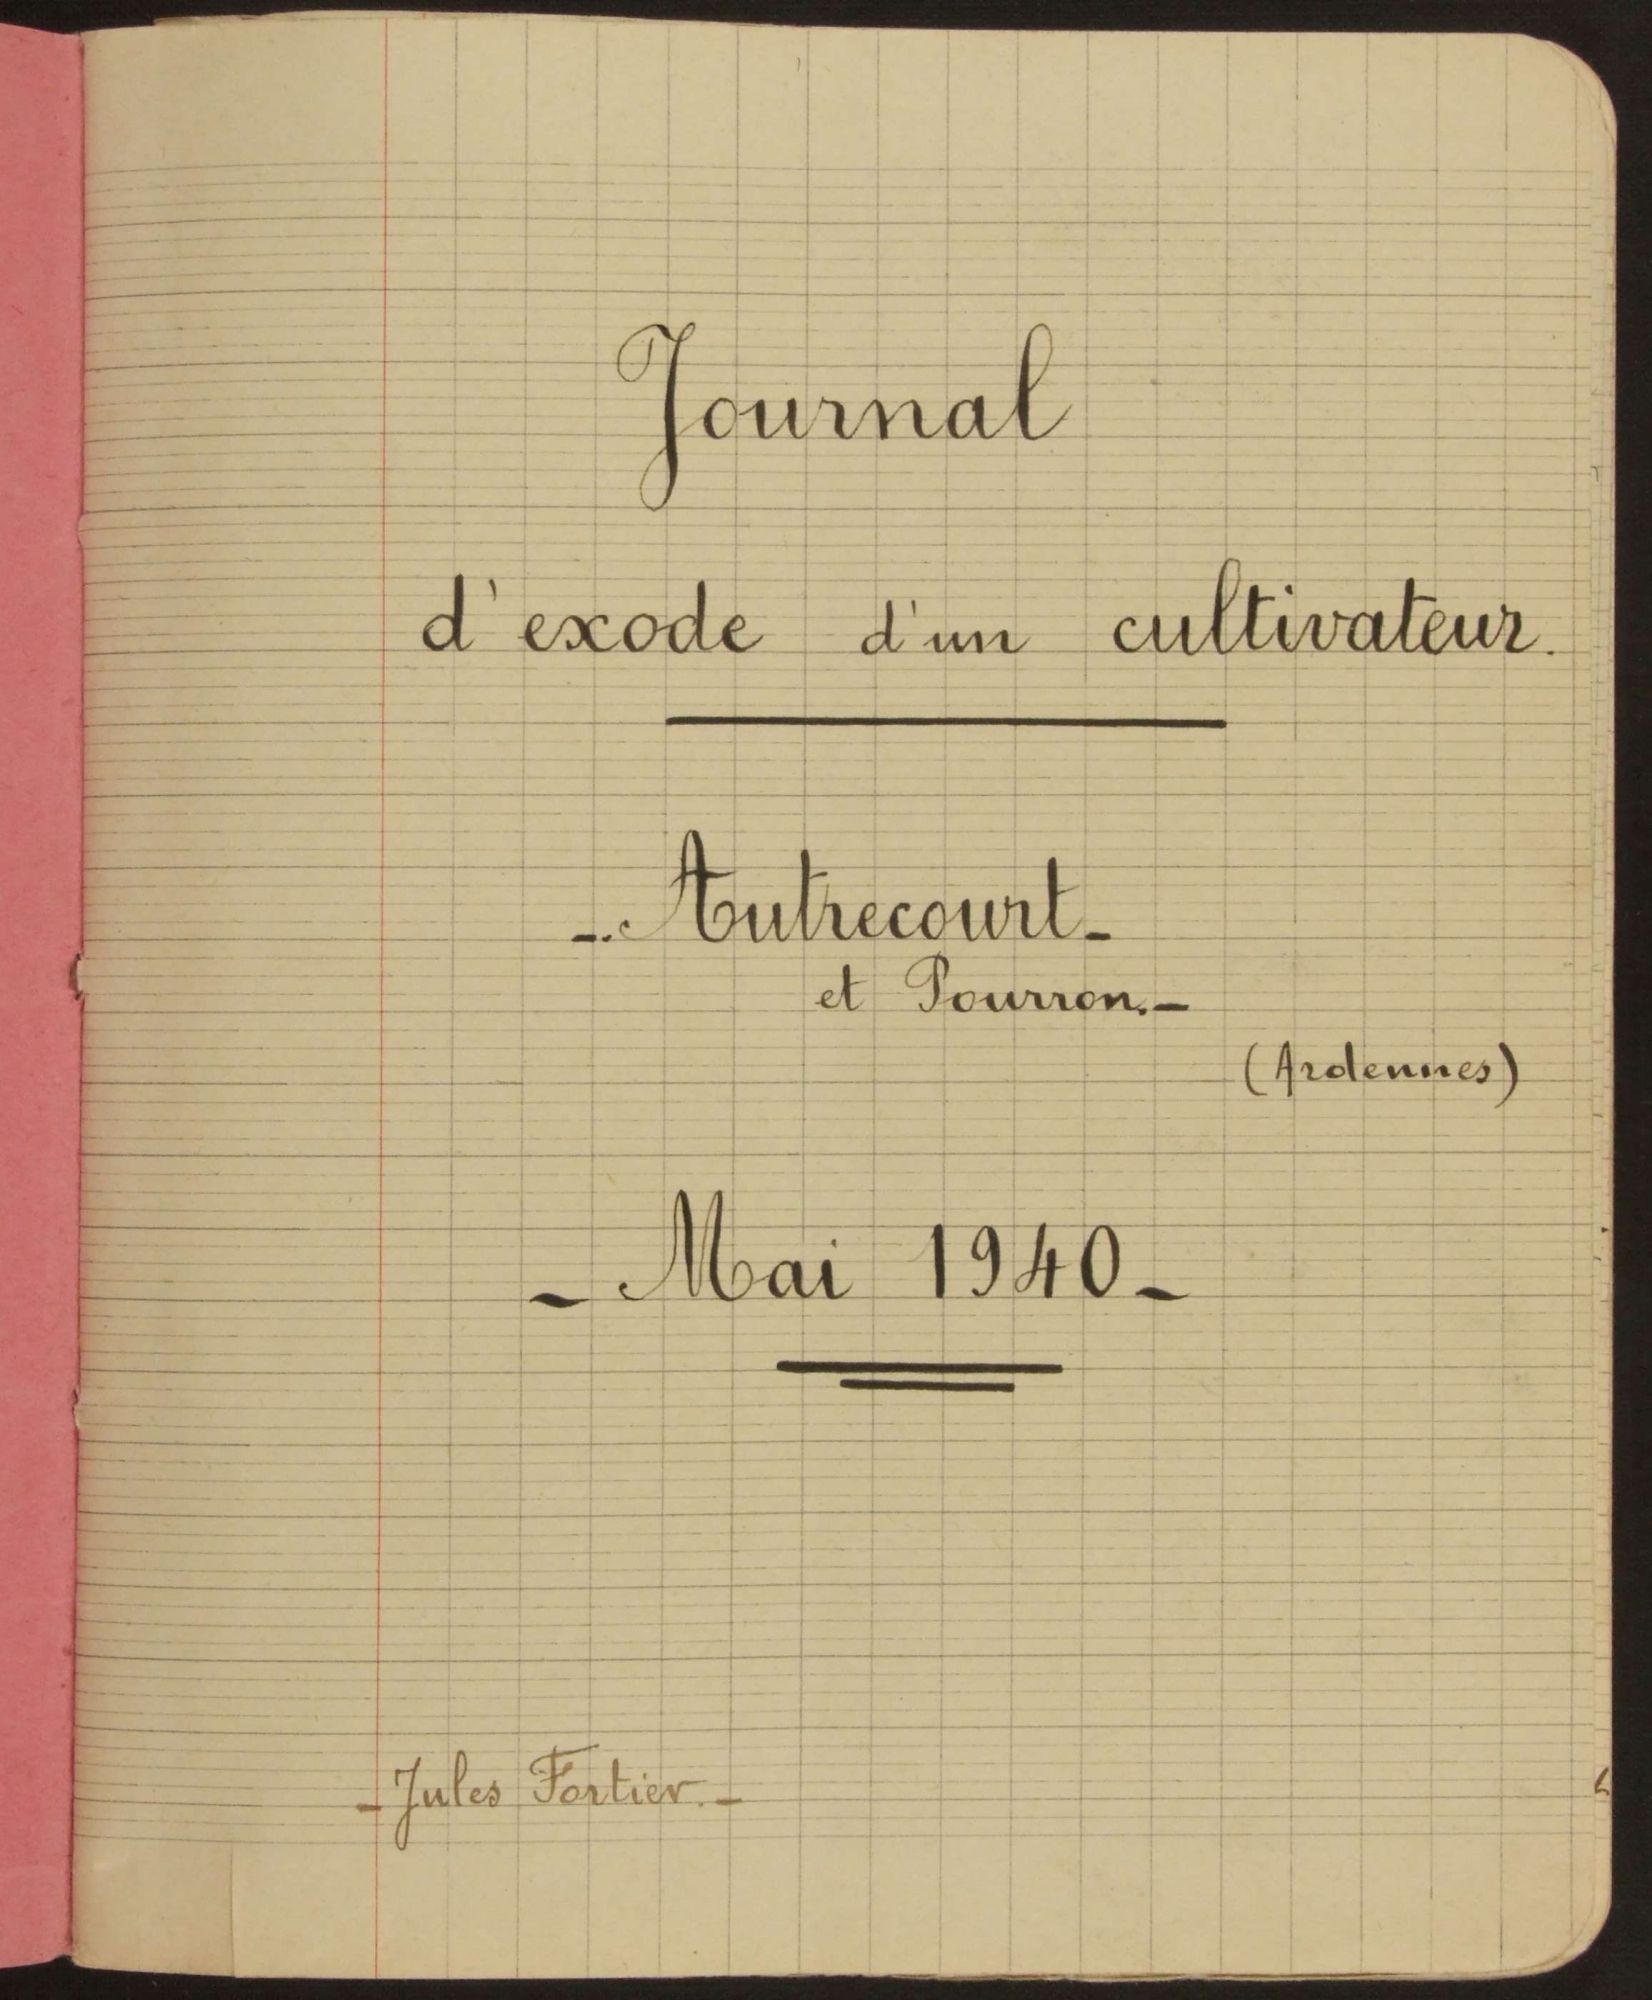 Journal
d'exode d'un cultivateur.
-. Autrecourt -
et Pourron. -
(Ardennes)
- Mai 1940 -
- Jules Fortier. -